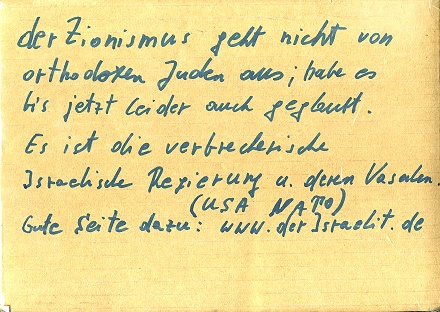 der Zionismus geht nicht von
orthodoxen Juden aus; habe es
bis jetzt leider auch geglaubt.
Es ist die verbrecherische
Israelische Regierung u. deren Vasalen.
(USA NATO)
Gute Seite dazu: www.derIsraelit.de